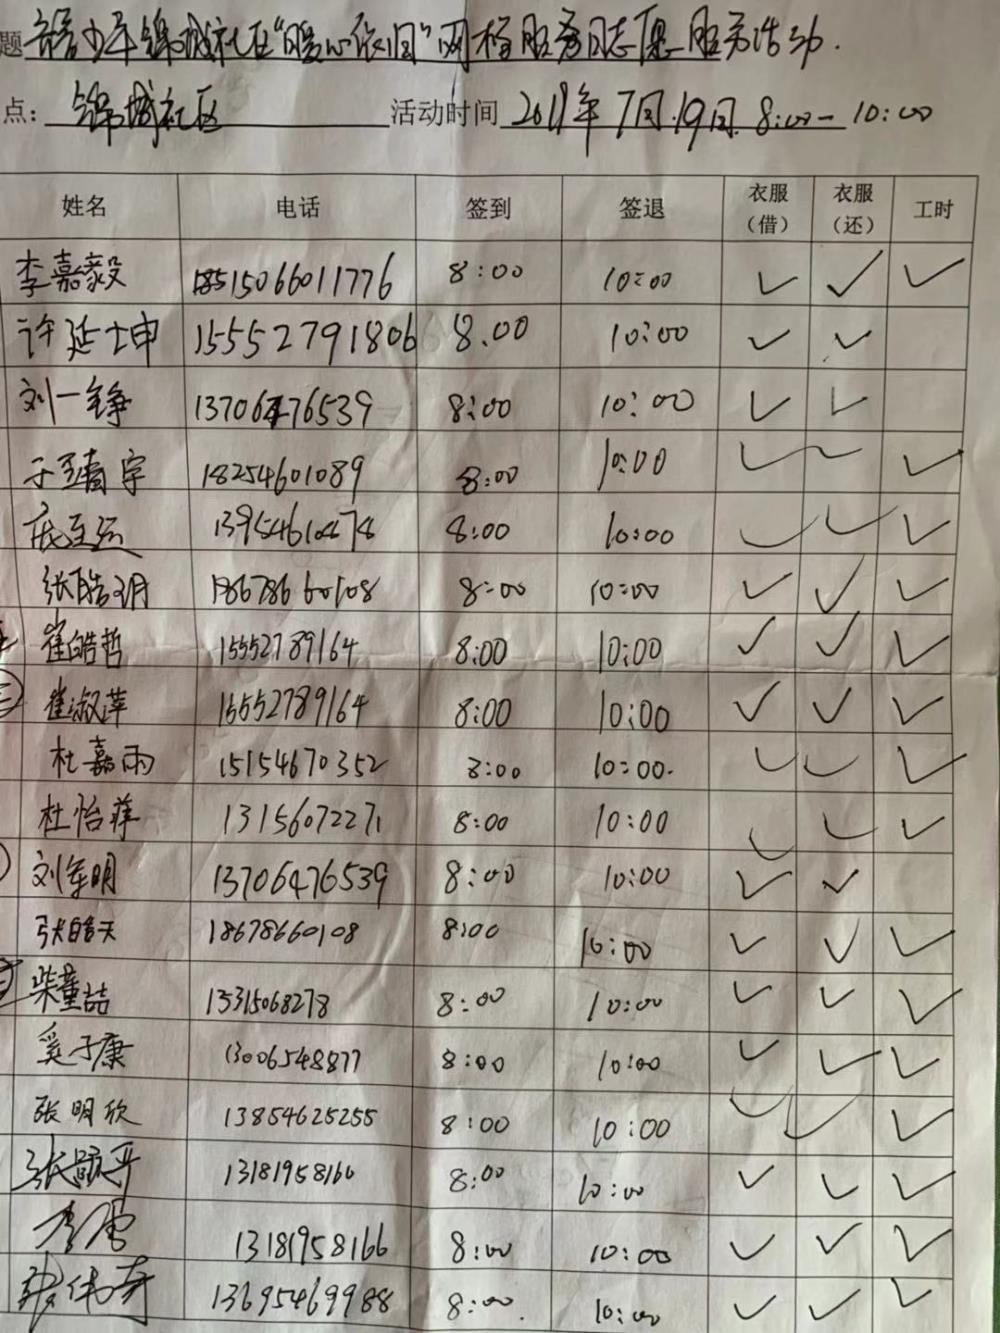 题 青少年锦城社区"暖心依旧"网格服务日志愿服务活动.
点: 锦城社区 活动时间 2019年7月19日 8:00-10:00
姓名 电话 签到 签退 衣服(借) 衣服(还) 工时
李嘉毅 15066011776 8:00 10:00 ✓ ✓ ✓
许延坤 15552791806 8.00 10:00 ✓ ✓
刘一铮 13706476539 8:00 10:00 ✓ ✓
于 宇 18254601089 8:00 10:00 ✓ ✓ ✓
8:00 10:00 ✓ ✓ ✓
张皓玥 18678660108 8:00 10:00 ✓ ✓ ✓
崔皓哲 15552789164 8:00 10:00 ✓ ✓ ✓
崔淑萍 15552789164 8:00 10:00 ✓ ✓ ✓
杜嘉雨 15154670352 8:00 10:00. ✓ ✓ ✓
杜怡萍 13156072271 8:00 10:00 ✓ ✓ ✓
刘军明 13706476539 8:00 10:00 ✓ ✓
张皓天 18678660108 8:00 10:00 ✓ ✓ ✓
柴童喆 15315068278 8:00 10:00 ✓ ✓ ✓
奚子康 13006548877 8:00 10:00 ✓ ✓ ✓
张明欣 13854625255 8:00 10:00 ✓ ✓ ✓
张 平 13181958166 8:00 10:00 ✓ ✓ ✓
李 13181958166 8:00 10:00 ✓ ✓ ✓
13695469988 8:00. 10:00 ✓ ✓ ✓